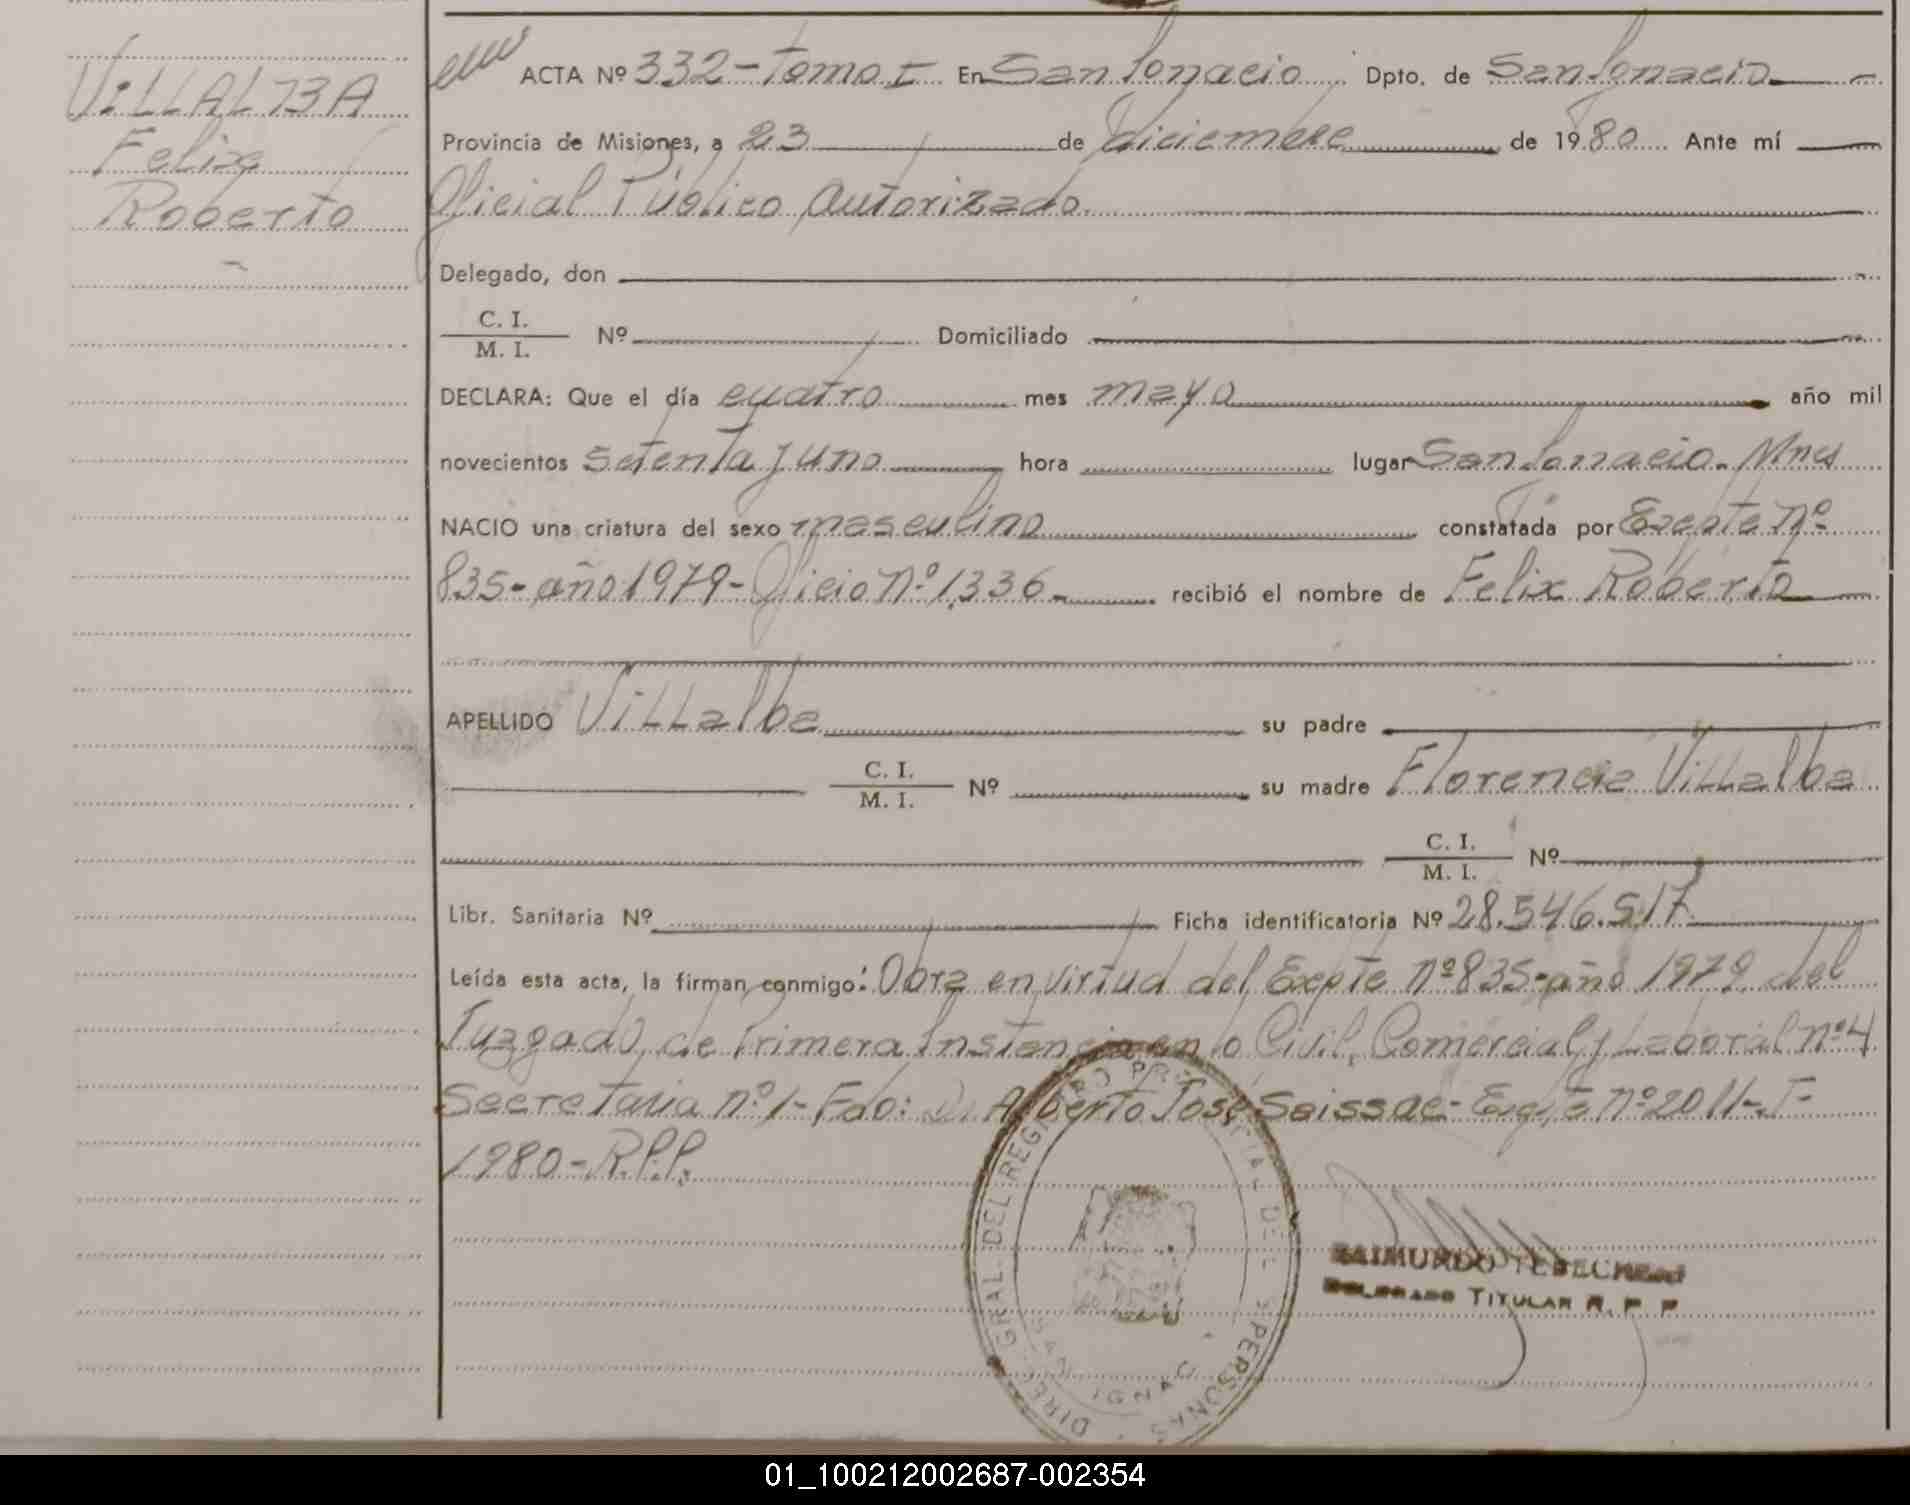 VILLALBA
Felix
Roberto
ACTA Nº 332-tomo I En San Ignacio Dpto. de San Ignacio
Provincia de Misiones, a 23 de diciembre de 1980 Ante mí
Oficial Público Autorizado
Delegado, don
C. I.
M. I. Nº Domiciliado
DECLARA: Que el día cuatro mes mayo año mil
novecientos setenta y uno hora lugar San Ignacio. Mnes
NACIO una criatura del sexo masculino constatada por Expte Nº
835-año 1979-Oficio Nº 1.336- recibió el nombre de Felix Roberto
APELLIDO Villalba su padre
C. I.
M. I. Nº su madre Florencia Villalba
C. I.
M. I. Nº
Libr. Sanitaria Nº Ficha identificatoria Nº 28.546.517
Leída esta acta, la firman conmigo: Obra en virtud del Expte nº 835-año 1979 del
Juzgado de Primera Instancia en lo Civil, Comercial y Laboral nº 4
Secretaria nº 1-Fdo: Dr Alberto José Seissac- Expte nº 2011-F-
1980-R.P.P.
DIREC. GRAL. DEL REGISTRO PROVINCIAL DE PERSONAS
SAN IGNACIO
RAIMUNDO
DELEGADO TITULAR R. P. P
01_100212002687-002354